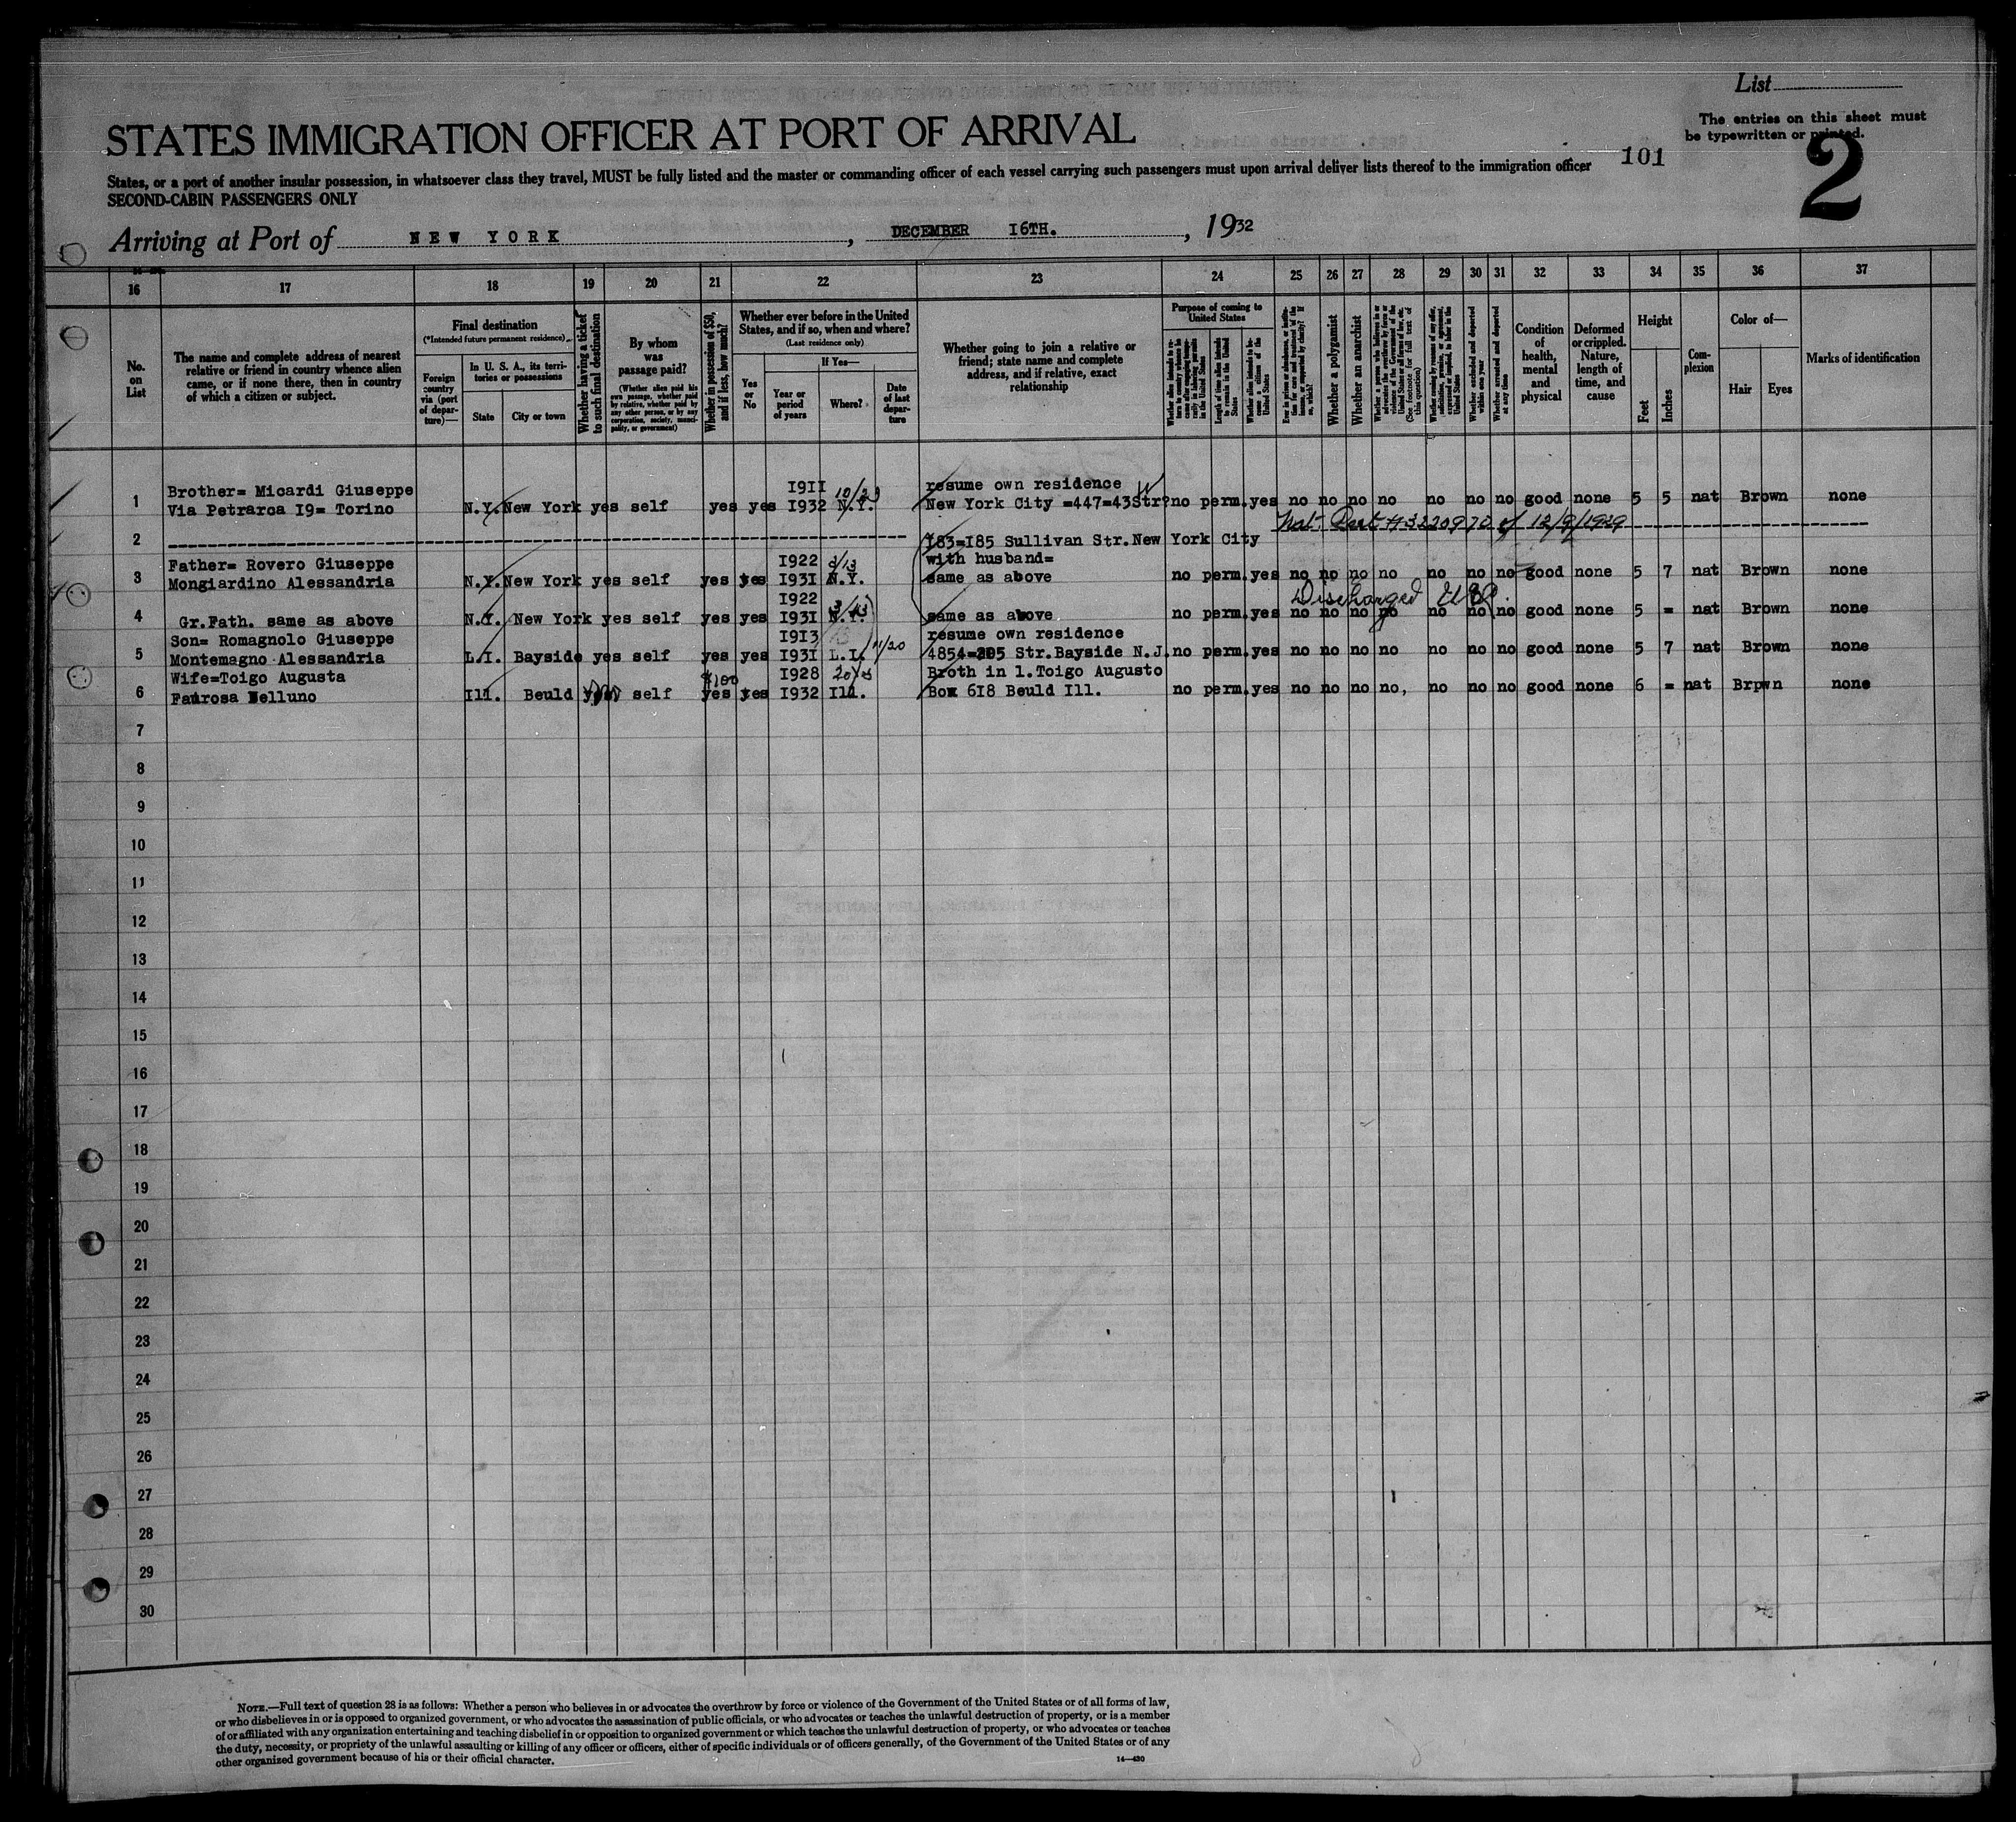 List
The entries on this sheet must
be typewritten or printed.
STATES IMMIGRATION OFFICER AT PORT OF ARRIVAL
101
2
States, or a port of another insular possession, in whatsoever class they travel, MUST be fully listed and the master or commanding officer of each vessel carrying such passengers must upon arrival deliver lists thereof to the immigration officer
SECOND-CABIN PASSENGERS ONLY
Arriving at Port of NEW YORK, DECEMBER I6TH., 1932
16 17 18 19 20 21 22 23 24 25 26 27 28 29 30 31 32 33 34 35 36 37
No. on List
The name and complete address of nearest
relative or friend in country whence alien
came, or if none there, then in country
of which a citizen or subject.
Final destination
(*Intended future permanent residence)
Foreign country via (port of departure)—
In U. S. A., its territories or possessions
State
City or town
Whether having a ticket to such final destination
By whom was passage paid?
(Whether alien paid his own passage, whether paid by relative, whether paid by any other person, or by any corporation, society, municipality, or government)
Whether in possession of $50, and if less, how much?
Whether ever before in the United States, and if so, when and where?
(Last residence only)
Yes or No
If Yes—
Year or period of years
Where?
Date of last departure
Whether going to join a relative or
friend; state name and complete
address, and if relative, exact
relationship
Purpose of coming to United States
Whether a polygamist
Whether an anarchist
Condition of health, mental and physical
Deformed or crippled. Nature, length of time, and cause
Height
Feet
Inches
Complexion
Color of—
Hair
Eyes
Marks of identification
Brother= Micardi Giuseppe I9II 10/23 resume own residence W
1 Via Petrarca I9= Torino N.Y. New York yes self yes yes I932 N.Y. New York City =447=43Str? no perm. yes no no no no no no no good none 5 5 nat Brown none
of 12/9/1929
2 I83=I85 Sullivan Str.New York City
Father= Rovero Giuseppe I922 3/13 with husband=
3 Mongiardino Alessandria N.Y. New York yes self yes yes I93I N.Y. same as above no perm. yes no no no no no no no good none 5 7 nat Brown none
I922 3/13 Discharged
4 Gr.Fath. same as above N.Y. New York yes self yes yes I93I N.Y. same as above no perm. yes no no no no no no no good none 5 = nat Brown none
Son= Romagnolo Giuseppe I9I3 11/20 resume own residence
5 Montemagno Alessandria L.I. Bayside yes self yes yes I93I L.I. 4854=205 Str.Bayside N.J. no perm. yes no no no no no no no good none 5 7 nat Brown none
Wife=Toigo Augusta $100 I928 Broth in l.Toigo Augusto
6 Ill. Beuld self yes yes I932 Ill. Box 6I8 Beuld Ill. no perm. yes no no no no, no no no good none 6 = nat Brpwn none
7
8
9
10
11
12
13
14
15
16
17
18
19
20
21
22
23
24
25
26
27
28
29
30
NOTE.—Full text of question 28 is as follows: Whether a person who believes in or advocates the overthrow by force or violence of the Government of the United States or of all forms of law,
or who disbelieves in or is opposed to organized government, or who advocates the assassination of public officials, or who advocates or teaches the unlawful destruction of property, or is a member
of or affiliated with any organization entertaining and teaching disbelief in or opposition to organized government or which teaches the unlawful destruction of property, or who advocates or teaches
the duty, necessity, or propriety of the unlawful assaulting or killing of any officer or officers, either of specific individuals or of officers generally, of the Government of the United States or of any
other organized government because of his or their official character.
14—430